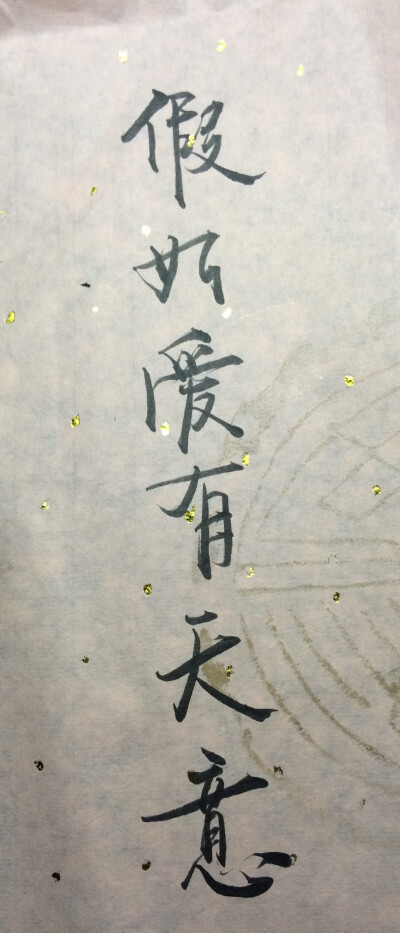 假如爱有天意